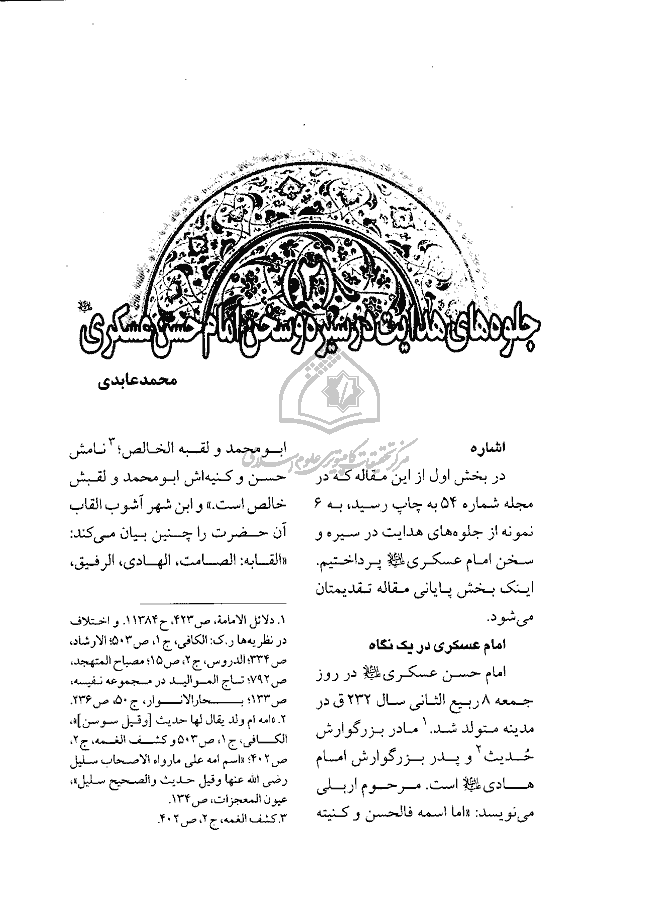 (۲)
جلوه‌های هدایت در سیره و سخن امام حسن عسکری
محمد عابدی
اشاره
در بخش اول از این مقاله که در
مجله شماره ۵۴ به چاپ رسید، به ۶
نمونه از جلوه‌های هدایت در سیره و
سخن امام عسکری پرداختیم.
اینک بخش پایانی مقاله تقدیمتان
می‌شود.
امام عسکری در یک نگاه
امام حسن عسکری در روز
جمعه ۸ ربیع الثانی سال ۲۳۲ ق در
مدینه متولد شد.۱ مادر بزرگوارش
حُدیث۲ و پدر بزرگوارش امام
هادی است. مرحوم اربلی
می‌نویسد: «اما اسمه فالحسن و کنیته
ابومحمد و لقبه الخالص؛۳ نامش
حسن و کنیه‌اش ابومحمد و لقبش
خالص است.» و ابن شهر آشوب القاب
آن حضرت را چنین بیان می‌کند:
«القابه: الصامت، الهادی، الرفیق،
۱. دلائل الامامة، ص۴۲۳، ح۱۱۳۸۴. و اختلاف
در نظریه‌ها ر.ک: الکافی، ج۱، ص۵۰۳؛ الارشاد،
ص۳۳۴؛ الدروس، ج۲، ص۱۵؛ مصباح المتهجد،
ص۷۹۲؛ تاج الموالید در مجموعه نفیسه،
ص۱۳۳؛ بحارالانوار، ج۵۰، ص۲۳۶.
۲. «امه ام ولد یقال لها حدیث [وقیل سوسن]»،
الکافی، ج۱، ص۵۰۳ و کشف الغمه، ج۲،
ص۴۰۲؛ «اسم امه علی مارواه الاصحاب سلیل
رضی الله عنها وقیل حدیث والصحیح سلیل»،
عیون المعجزات، ص۱۳۴.
۳. کشف الغمه، ج۲، ص۴۰۲.
مرکز تحقیقات کامپیوتری علوم اسلامی